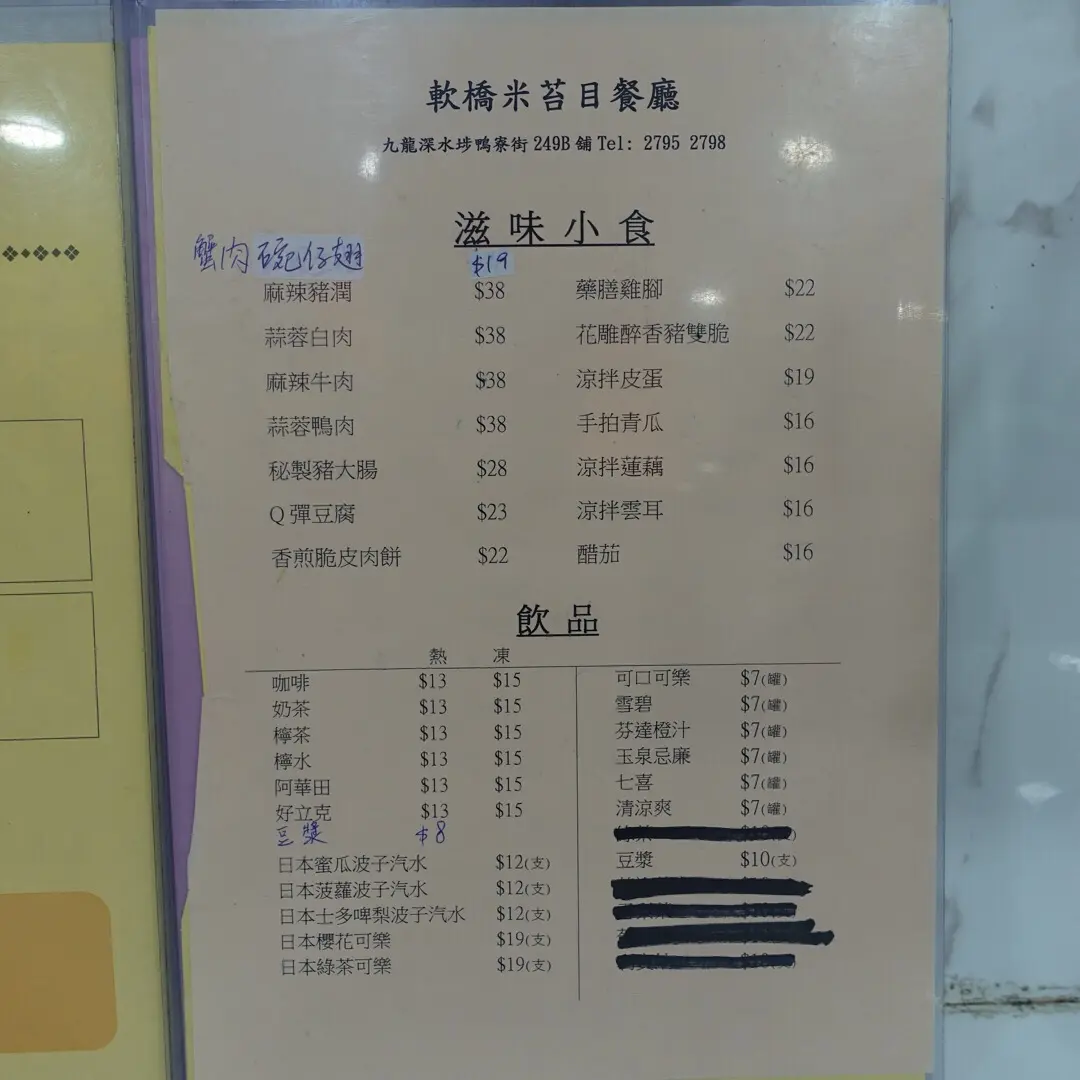 軟橋米苔目餐廳
九龍深水埗鴨寮街 249B 舖 Tel: 2795 2798
滋味小食
蟹肉碗仔翅 $19
麻辣豬潤 $38 藥膳雞腳 $22
蒜蓉白肉 $38 花雕醉香豬雙脆 $22
麻辣牛肉 $38 涼拌皮蛋 $19
蒜蓉鴨肉 $38 手拍青瓜 $16
秘製豬大腸 $28 涼拌蓮藕 $16
Q 彈豆腐 $23 涼拌雲耳 $16
香煎脆皮肉餅 $22 醋茄 $16
飲品
熱 凍
咖啡 $13 $15
奶茶 $13 $15
檸茶 $13 $15
檸水 $13 $15
阿華田 $13 $15
好立克 $13 $15
豆漿 $8
日本蜜瓜波子汽水 $12(支)
日本菠蘿波子汽水 $12(支)
日本士多啤梨波子汽水 $12(支)
日本櫻花可樂 $19(支)
日本綠茶可樂 $19(支)
可口可樂 $7(罐)
雪碧 $7(罐)
芬達橙汁 $7(罐)
玉泉忌廉 $7(罐)
七喜 $7(罐)
清涼爽 $7(罐)
豆漿 $10(支)